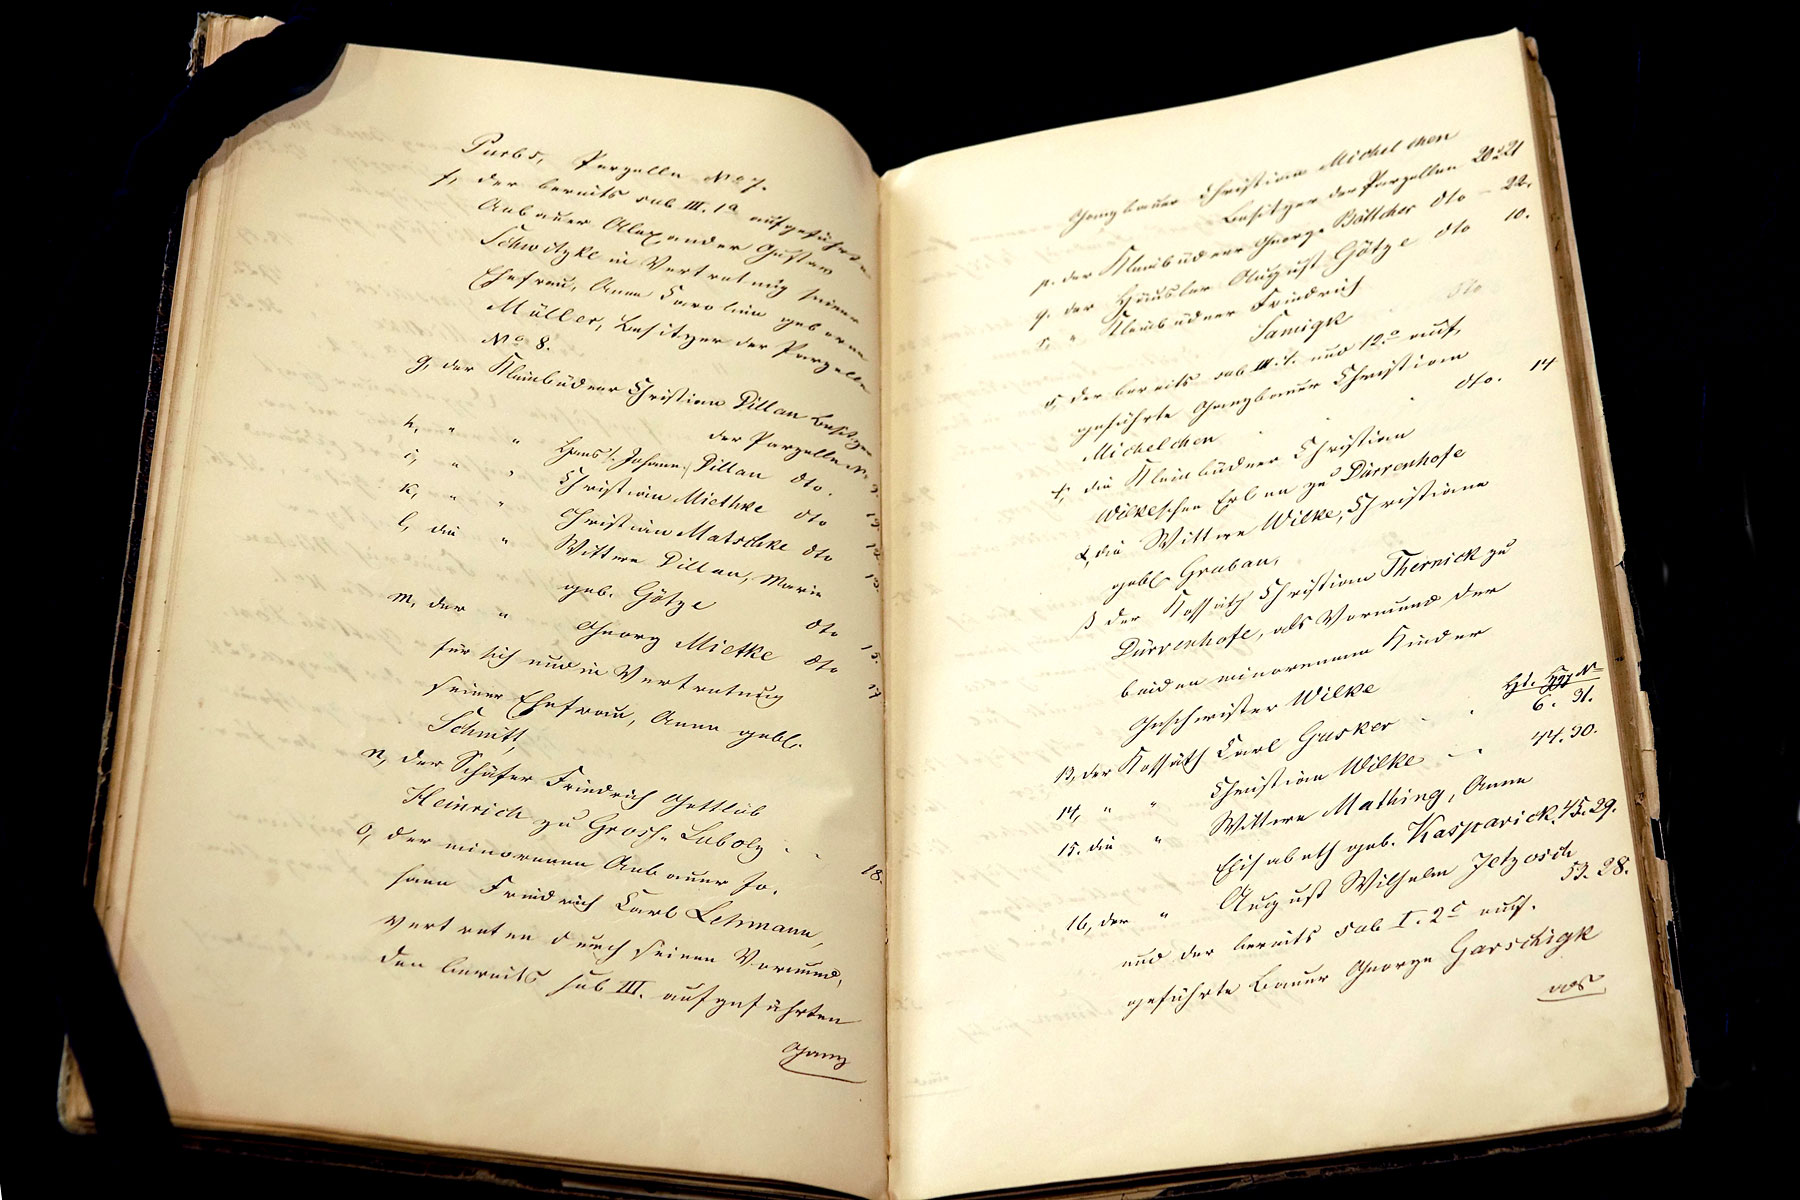 Purbs, Parzelle No 7.
f, der bereits sub III. 1a aufgeführte
Anbauer Alexander Gustav
Schwotzke in Vertretung seiner
Ehefrau, Anna Carolina geborne
Müller, Besitzer der Parzelle
No 8.
g, der Kleinbüdner Christian Dillan Besitzer
der Parzelle No 9.
h, " " Hans /: Johann :/ Dillan dto.
i, " " Christian Miethke dto
k, " " Christian Matschke dto
l, die " Wittwe Dillan, Marie
geb. Götze dto 15.
m, der " George Mietke dto 17
für sich und in Vertretung
seiner Ehefrau, Anna gebl.
Schmitt,
n, der Schäfer Friedrich Gottlob
Heinrich zu Gross- Lubolz . . 18.
o, der minorenne Anbauer Jo-
hann Friedrich Carl Lehmann,
vertreten durch seinen Vormund,
den bereits sub III. aufgeführten
Ganz
Ganzbauer Christian Michelchen
Besitzer der Parzellen 20 u 21
p. der Kleinbüdner George Böttcher dto — 22.
q. der Häusler August Götze dto 10.
r, " Kleinbüdner Friedrich
Samigk dto
s, der bereits sub III. 1. und 12.a auf-
geführte Ganzbauer Christian
Michelchen . . . dto. 14
t, die Kleinbüdner Christian
Wilkeschen Erben zu Dürrenhofe
α, die Wittwe Wilke, Christiane
gebl. Graban,
β der Kossäth Christian Thernick zu
Dürrenhofe, als Vormund der
beiden minorennen Kinder
Geschwister Wilke
13, der Kossäth Carl Gusker . . 6. 31.
14, " " Christian Wilke . . 44. 30.
15. die " Wittwe Mathing, Anne
Elisabeth geb. Kasparick. 45. 29.
16, der " August Wilhelm Jetzosch 53. 28.
und der bereits sub I. 2c auf-
geführte Bauer George Garschigk
aus